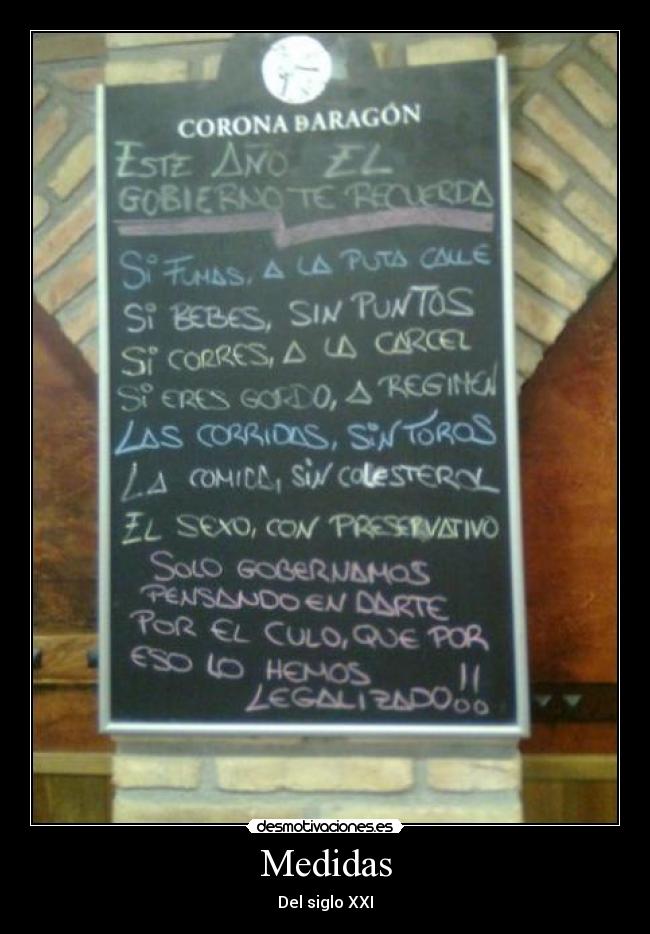 CORONA DARAGÓN
ESTE AÑO EL
GOBIERNO TE RECUERDA
Si FUMAS, A LA PUTA CALLE
Si BEBES, SIN PUNTOS
Si CORRES, A LA CARCEL
Si ERES GORDO, A REGIMEN
LAS CORRIDAS, SiN TOROS
LA COMIDA, SiN COLESTEROL
EL SEXO, CON PRESERVATIVO
SOLO GOBERNAMOS
PENSANDO EN DARTE
POR EL CULO, QUE POR
ESO LO HEMOS
LEGALIZADO!!
desmotivaciones.es
Medidas
Del siglo XXI